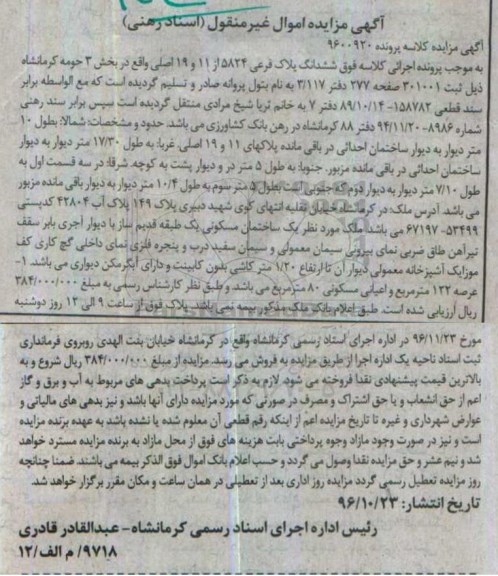 آگهی مزایده اموال غیرمنقول (اسناد رهنی)
آگهی مزایده کلاسه پرونده ۹۶۰۰۹۲۰
به موجب پرونده اجرائی کلاسه فوق ششدانگ پلاک فرعی ۵۸۲۴ از ۱۱ و ۱۹ اصلی واقع در بخش ۳ حومه کرمانشاه
ذیل ثبت ۳۰۱۰۰۱ صفحه ۲۷۷ دفتر ۳/۱۱۷ به نام بتول پروانه صادر و تسلیم گردیده است که مع الواسطه برابر
سند قطعی ۱۵۸۷۸۲- ۸۹/۱۰/۱۴ دفتر ۷ به خانم ثریا شیخ مرادی منتقل گردیده است سپس برابر سند رهنی
شماره ۸۹۸۶- ۹۴/۱۱/۲۰ دفتر ۸۸ کرمانشاه در رهن بانک کشاورزی می باشد. حدود و مشخصات: شمالا: بطول ۱۰
متر دیوار به دیوار ساختمان احداثی در باقی مانده پلاکهای ۱۱ و ۱۹ اصلی، غربا: به طول ۱۷/۳۰ متر دیوار به دیوار
ساختمان احداثی در باقی مانده مزبور. جنوبا: به طول ۵ متر در و دیوار پشت به کوچه. شرقا: در سه قسمت اول به
طول ۷/۱۰ متر دیوار به دیوار دوم که جنوبی است بطول ۵ متر سوم به طول ۱۰/۴ متر دیوار به دیوار باقی مانده مزبور
می باشد. آدرس ملک: در کرمانشاه خیابان نقلیه انتهای کوی شهید دبیری پلاک ۱۴۹ پلاک آب ۴۲۸۰۴ کدپستی
۵۳۴۹۹- ۶۷۱۹۷ می باشد. ملک مورد نظر یک ساختمان مسکونی یک طبقه قدیم ساز با دیوار آجری بابر سقف
تیرآهن طاق ضربی نمای بیرونی سیمان معمولی و سیمان سفید درب و پنجره فلزی نمای داخلی گچ کاری کف
موزائیک آشپزخانه معمولی دیوار آن تا ارتفاع ۱/۲۰ متر کاشی بدون کابینت و دارای آبگرمکن دیواری می باشد. ۱-
عرصه ۱۲۲ مترمربع و اعیانی مسکونی ۸۰ مترمربع می باشد و طبق نظر کارشناس رسمی به مبلغ ۳۸۴/۰۰۰/۰۰۰
ریال ارزیابی شده است. طبق اعلام بانک ملک مذکور بیمه نمی باشد. پلاک فوق از ساعت ۹ الی ۱۲ روز دوشنبه
مورخ ۹۶/۱۱/۲۳ در اداره اجرای اسناد رسمی کرمانشاه واقع در کرمانشاه خیابان بنت الهدی روبروی فرمانداری
ثبت اسناد ناحیه یک اداره اجرا از طریق مزایده به فروش می رسد. مزایده از مبلغ ۳۸۴/۰۰۰/۰۰۰ ریال شروع و به
بالاترین قیمت پیشنهادی نقدا فروخته می شود. لازم به ذکر است پرداخت بدهی های مربوط به آب و برق و گاز
اعم از حق انشعاب و یا حق اشتراک و مصرف در صورتی که مورد مزایده دارای آنها باشد و نیز بدهی های مالیاتی و
عوارض شهرداری و غیره تا تاریخ مزایده اعم از اینکه رقم قطعی آن معلوم شده یا نشده باشد به عهده برنده مزایده
است و نیز در صورت وجود مازاد وجوه پرداختی بابت هزینه های فوق از محل مازاد به برنده مزایده مسترد خواهد
شد و نیم عشر و حق مزایده نقدا وصول می گردد و حسب اعلام بانک اموال فوق الذکر بیمه می باشند. ضمنا چنانچه
روز مزایده تعطیل رسمی گردد مزایده روز اداری بعد از تعطیلی در همان ساعت و مکان مقرر برگزار خواهد شد.
تاریخ انتشار: ۹۶/۱۰/۲۳
رئیس اداره اجرای اسناد رسمی کرمانشاه- عبدالقادر قادری
۹۷۱۸/ م الف/۱۲